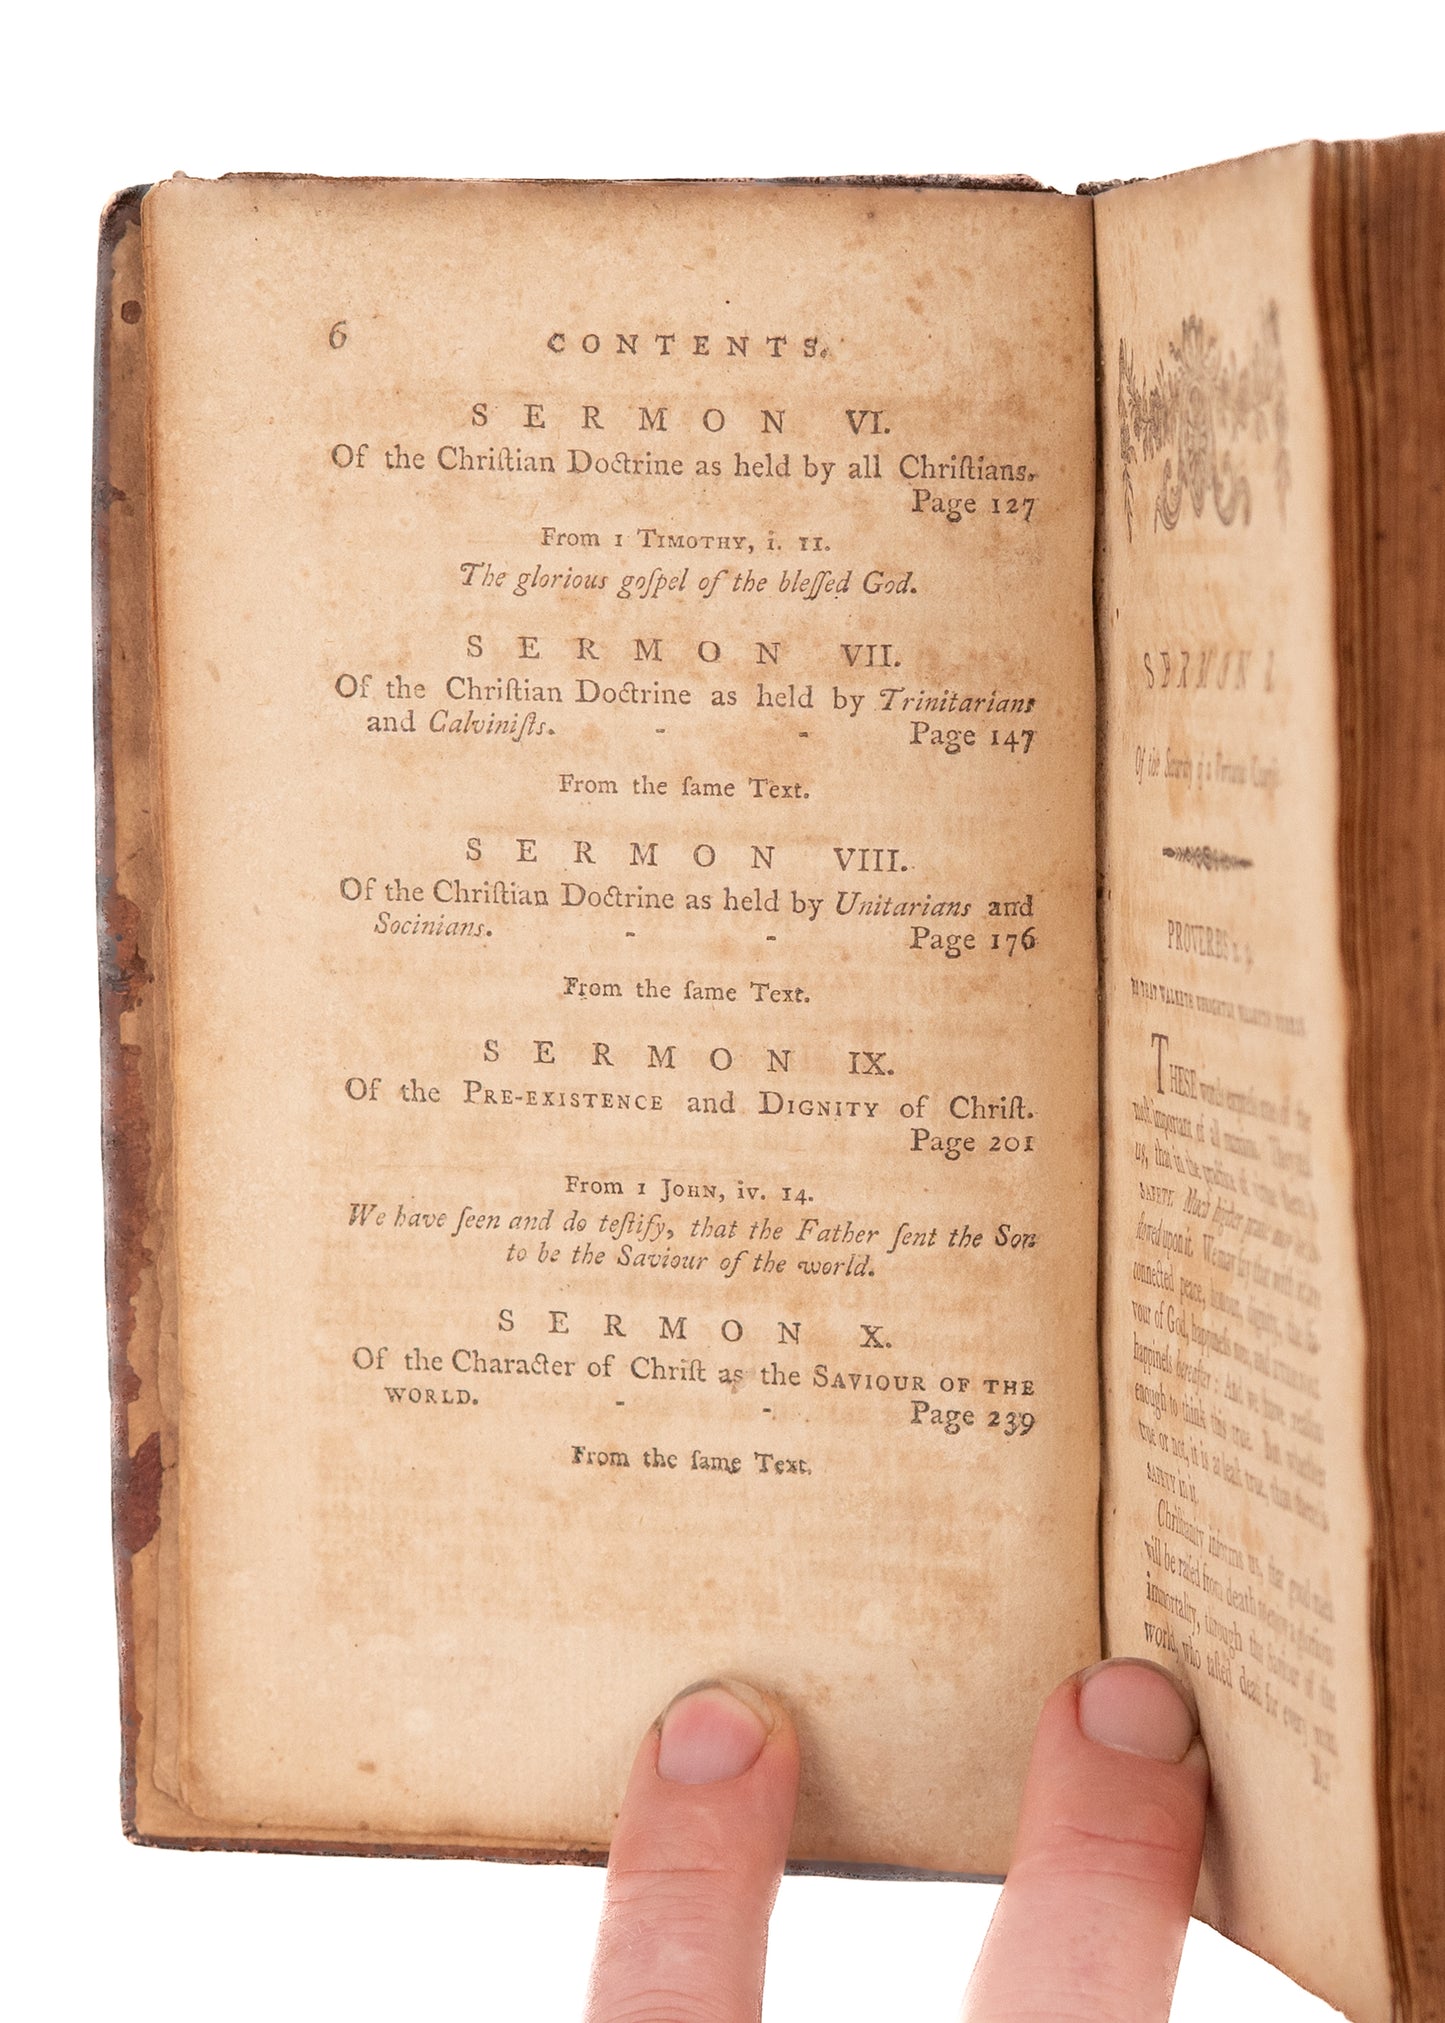 6 CONTENTS.
SERMON VI.
Of the Chriſtian Doctrine as held by all Chriſtians.
Page 127
From 1 TIMOTHY, i. 11.
The glorious goſpel of the bleſſed God.
SERMON VII.
Of the Chriſtian Doctrine as held by Trinitarians
and Calviniſts. - - Page 147
From the ſame Text.
SERMON VIII.
Of the Chriſtian Doctrine as held by Unitarians and
Socinians. - - Page 176
From the ſame Text.
SERMON IX.
Of the PRE-EXISTENCE and DIGNITY of Chriſt.
Page 201
From 1 JOHN, iv. 14.
We have ſeen and do teſtify, that the Father ſent the Son
to be the Saviour of the world.
SERMON X.
Of the Character of Chriſt as the SAVIOUR OF THE
WORLD. - - Page 239
From the ſame Text.
SERMON I.
Of the Security of a Virtuous
PROVERBS x. 9.
THESE words expreſs one of the
moſt important of all maxims. They tell
us, that in the practice of true virtue is
SAFETY. Much higher praiſe may be be-
ſtowed upon it. We may ſay that with it are
connected peace, honour, dignity, the fa-
vour of God, happineſs now, and eternal
happineſs hereafter: And we have reaſon
enough to think this true. But whether
true or not, it is at leaſt true, that there is
SAFETY in it.
Chriſtianity informs us, that good men
will be raiſed from death to enjoy a glorious
immortality, through the Saviour of the
world, who taſted death for every man